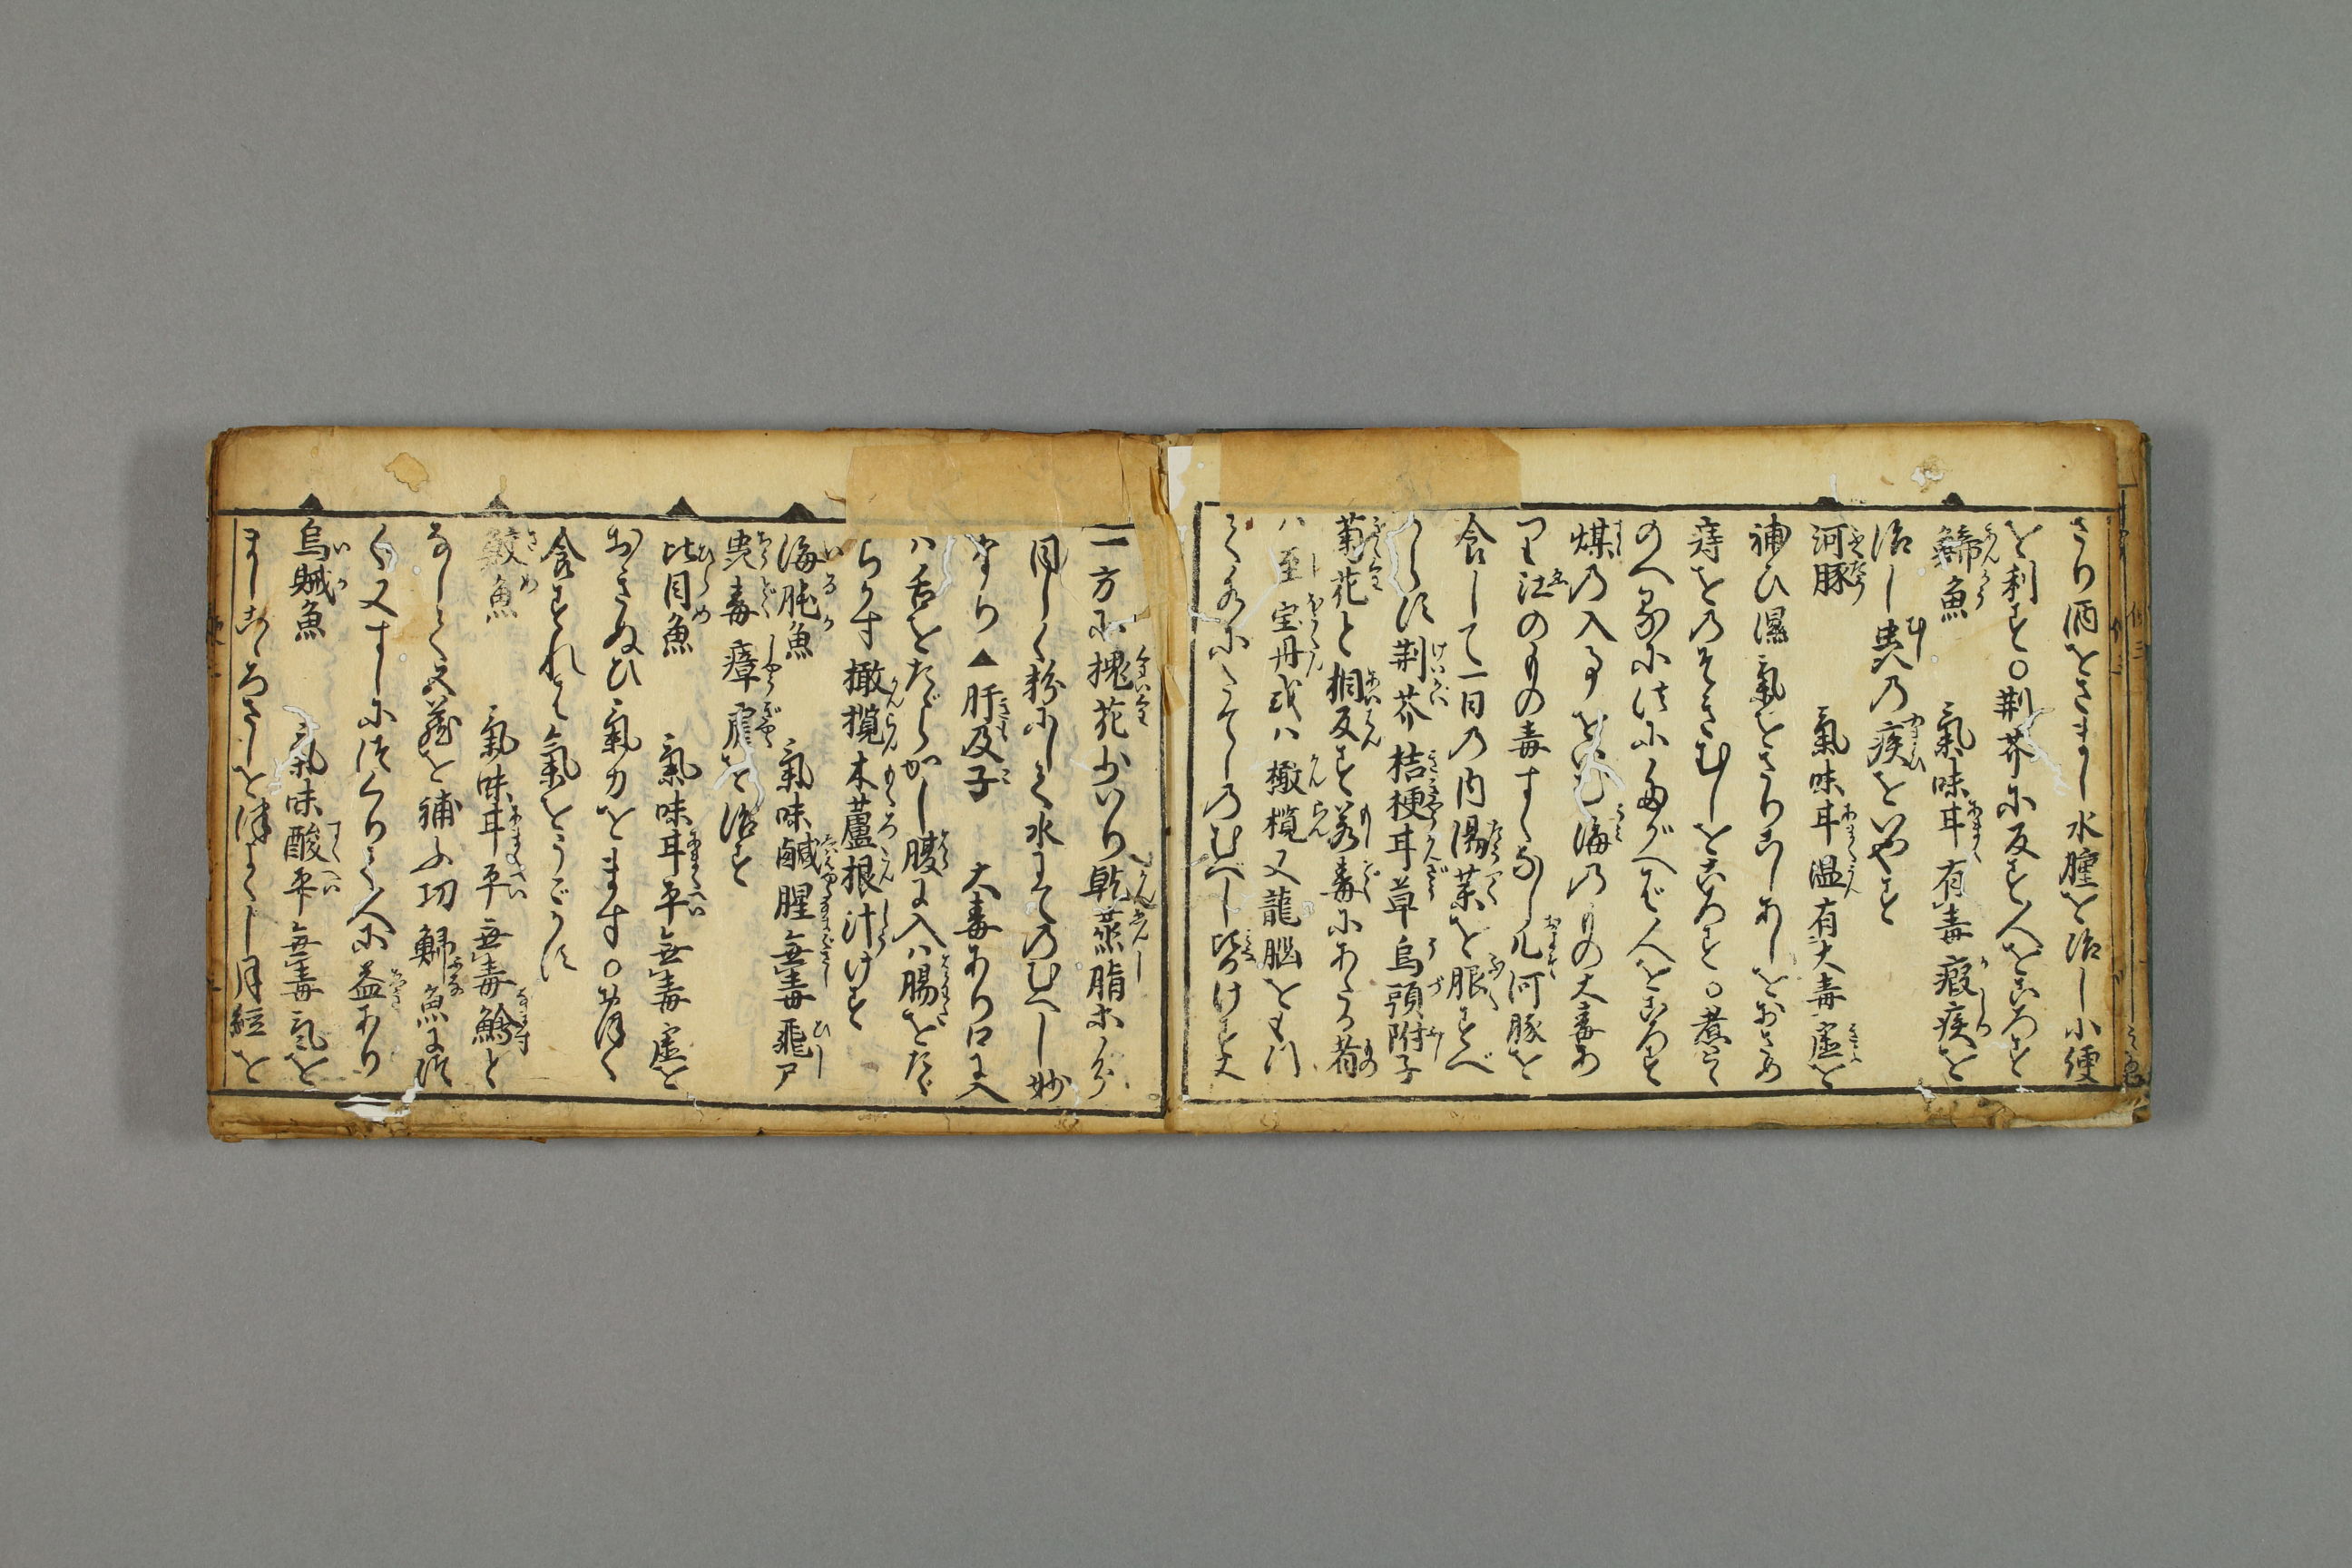 さり酒をさまし水腫を治し小便
を利す○荊芥に反す人をころす
鯑魚 氣味甘有毒瘕疾を
治し虫の疾をいやす
河豚 氣味甘温有大毒虚を
補ひ濕氣をさりこしあしをおさめ
痔をのぞきむしをころす○煮て
のへ家に法にたがへば人をころす
煤の入るをいむ海のもの大毒あ
り江のもの毒すくなし凡河豚を
食して一日の内湯薬を服すべ
からず荊芥桔梗甘草烏頭附子
菊花と桐反す若毒にあたる者
ハ至宝丹或ハ橄欖又龍脳を
水にたてしのむべし皆
一方に槐花少いり乾燕脂
同しく粉にして水にてのむべし妙
なり▲肝及子 大毒あり口に入
ハ舌をたゞらかし腹に入ハ腸をたゞ
らかす橄欖木蘆根汁けす
海豚魚 氣味鹹腥無毒飛尸
虫毒瘴瘧を治す
比目魚 氣味甘平無毒虚を
おきぬひ氣力をます○多く
食すれば氣をうごかす
鮫魚 氣味甘平無毒鱠と
なして五蔵を補ふ功鯽魚に次
く又すしにつくりて人に益あり
烏賊魚 氣味酸平無毒氣を
ましこゝろざしを津よくし月経を